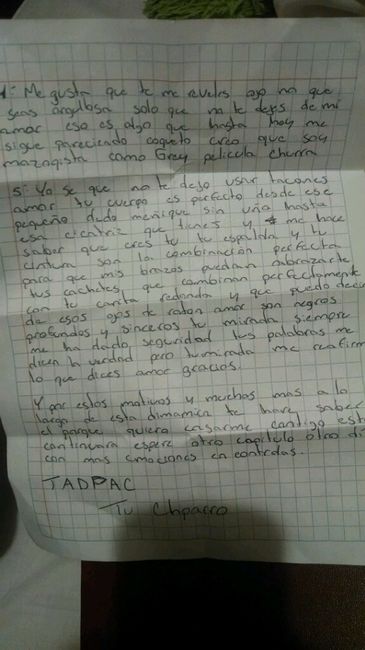 4:- Me gusta que te me reveles ojo no que
seas angelosa solo que no te dejes de mi
amor eso es algo que hasta hoy me
sigue pareciendo coqueto creo que soy
mazoquista como Grey pelicula churra
5: Yo se que no te dejo usar tacones
amor tu cuerpo es perfecto desde ese
pequeño dedo meñique sin uña hasta
esa cicatriz que tienes y me hace
saber que eres tu tu espalda y tu
cintura son la combinación perfecta
para que mis brazos puedan abrazarte
tus cachetes que combinan perfectamente
con tu carita redonda y que puedo decir
de esos ojos de raton amor son negros
profundos y sinceros tu mirada siempre
me ha dado seguridad tus palabras me
dicen la verdad pero tu mirada me reafirm
lo que dices amor gracias.
Y por estos motivos y muchos mas a lo
largo de esta dimamica te hare saber
el porque quiero casarme contigo est
continuara espere otro capitulo otro di
con mas emociones encontradas.
TADPAC
Tu Chparro